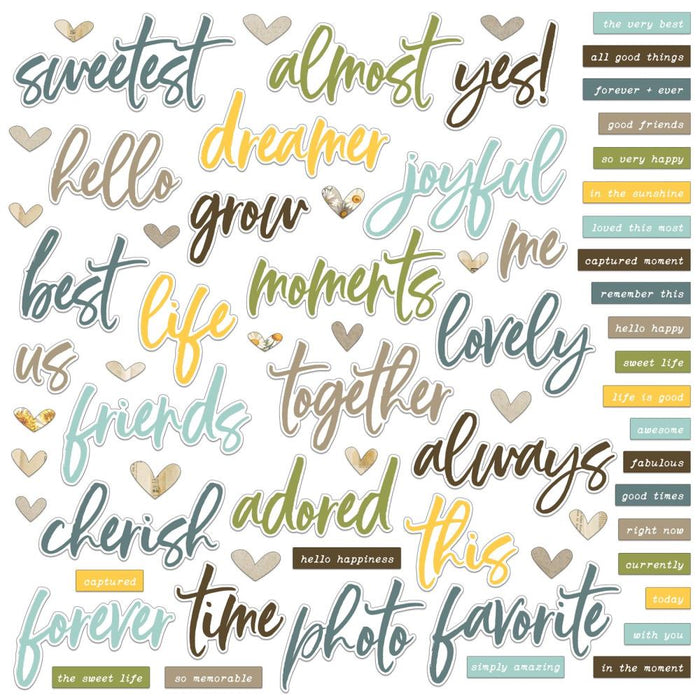 sweetest
almost
yes!
hello
dreamer
joyful
grow
me
best
life
moments
lovely
us
friends
together
always
cherish
adored
this
hello happiness
captured
forever
time
photo
favorite
the sweet life
so memorable
simply amazing
the very best
all good things
forever + ever
good friends
so very happy
in the sunshine
loved this most
captured moment
remember this
hello happy
sweet life
life is good
awesome
fabulous
good times
right now
currently
today
with you
in the moment